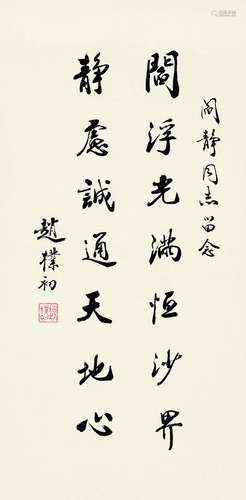 阎静同志留念
閻浮光滿恒沙界
静慮誠通天地心
趙樸初